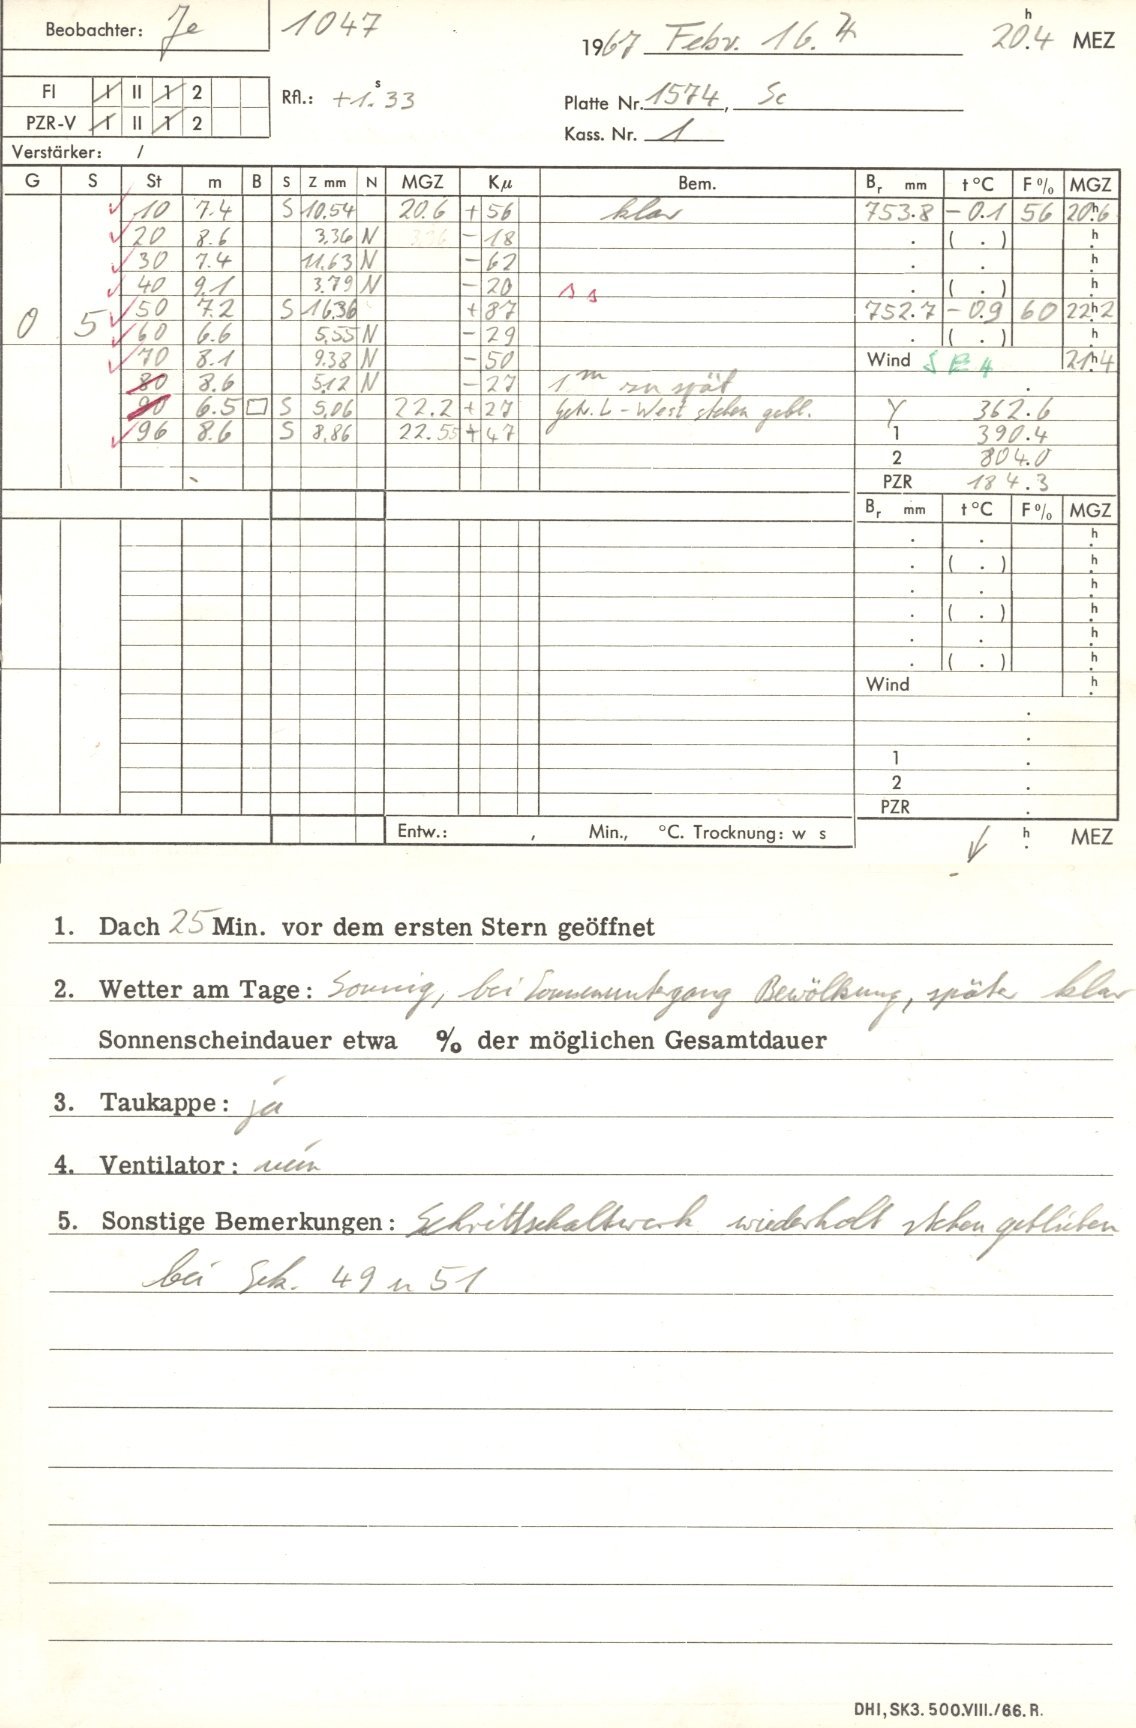 Beobachter: Je 1047 1967 Febr. 16. 4 20.4 h MEZ
FI I II 1 2 Rfl.: +1.s33 Platte Nr. 1574, Sc
PZR-V I II 1 2 Kass. Nr. 1
Verstärker: /
G S St m B S Z mm N MGZ Kμ Bem. Br mm t °C F % MGZ
10 7.4 S 10.54 20.6 + 56 klar 753.8 - 0.1 56 20h.6
20 8.6 3.36 N - 18 . ( . ) h.
30 7.4 11.63 N - 62 . . h.
40 9.1 3.79 N - 20 s s . ( . ) h.
0 5 50 7.2 S 16.36 + 87 752.7 - 0.9 60 22h.2
60 6.6 5.55 N - 29 . ( . ) h.
70 8.1 9.38 N - 50 Wind SE 4 21h.4
80 8.6 5.12 N - 27 1m zu spät .
90 6.5 □ S 5.06 22.2 + 27 Getr. L - West stehen gebl. Y 362.6
96 8.6 S 8.86 22.55 + 47 1 390.4
2 804.0
PZR 184.3
Br mm t °C F % MGZ
. . h.
. ( . ) h.
. . h.
. ( . ) h.
. . h.
. ( . ) h.
Wind h.
.
.
1 .
2 .
PZR .
Entw.: , Min., °C. Trocknung: w s h. MEZ
1. Dach 25 Min. vor dem ersten Stern geöffnet
2. Wetter am Tage: Sonnig, bei Sonnenuntergang Bewölkung, später klar
Sonnenscheindauer etwa % der möglichen Gesamtdauer
3. Taukappe: ja
4. Ventilator: nein
5. Sonstige Bemerkungen: Schrittschaltwerk wiederholt stehen geblieben
bei Sek. 49 u 51
DHI, SK3. 500.VIII./66. R.